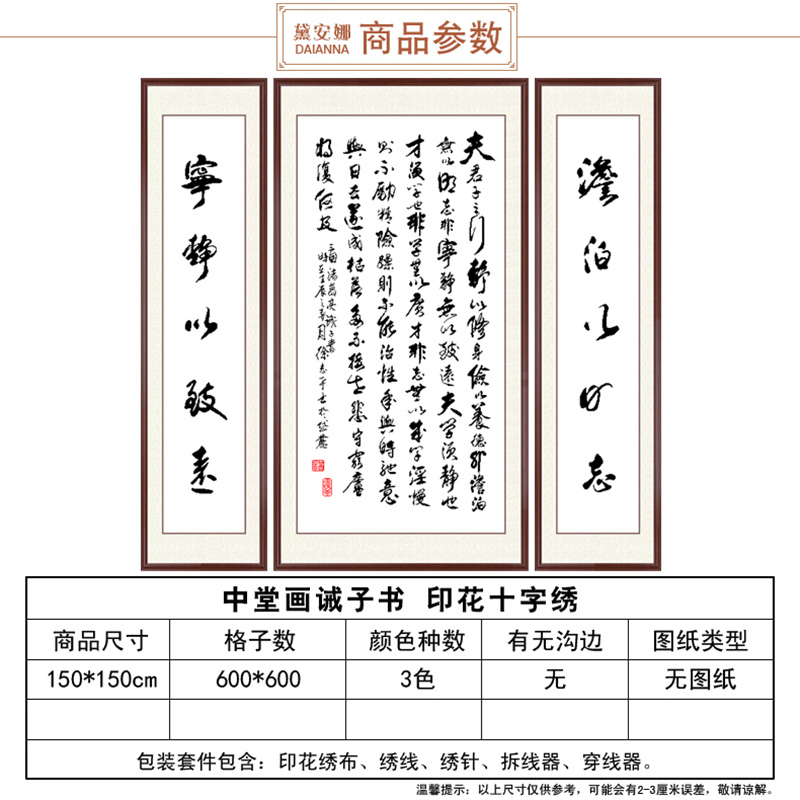 黛安娜
DAIANNA
商品参数
澹泊以明志
夫君子之行静以修身儉以養德非澹泊
無以明志非寧静無以致遠夫学須静也
才須学也非学無以廣才非志無以成学淫慢
則不勵精險躁則不能治性年與時馳意
與日去遂成枯落多不接世悲守窮廬
將復何及
三國諸葛亮誡子書
寧静以致遠
中堂画诫子书 印花十字绣
商品尺寸 格子数 颜色种数 有无沟边 图纸类型
150*150cm 600*600 3色 无 无图纸
包装套件包含：印花绣布、绣线、绣针、拆线器、穿线器。
温馨提示：以上尺寸仅供参考，可能会有2-3厘米误差，敬请谅解。